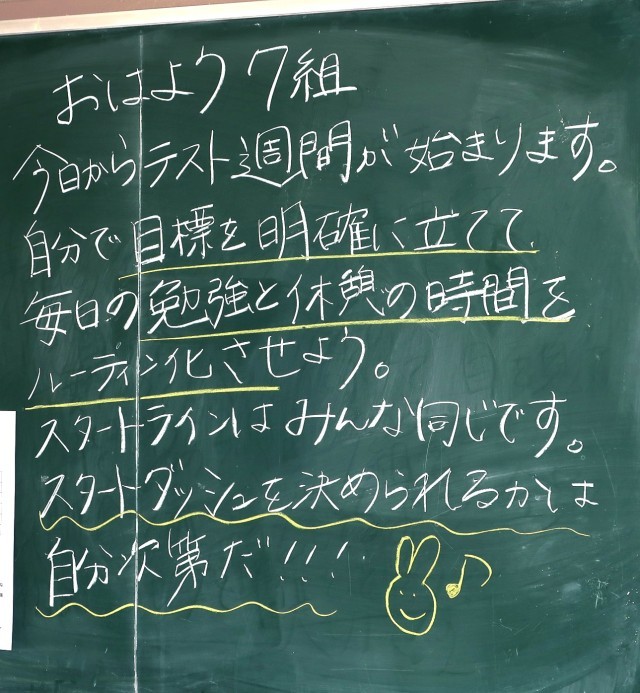 おはよう 7組
今日からテスト週間が始まります。
自分で目標を明確に立てて、
毎日の勉強と休憩の時間を
ルーティン化させよう。
スタートラインはみんな同じです。
スタートダッシュを決められるかは
自分次第だ!!!